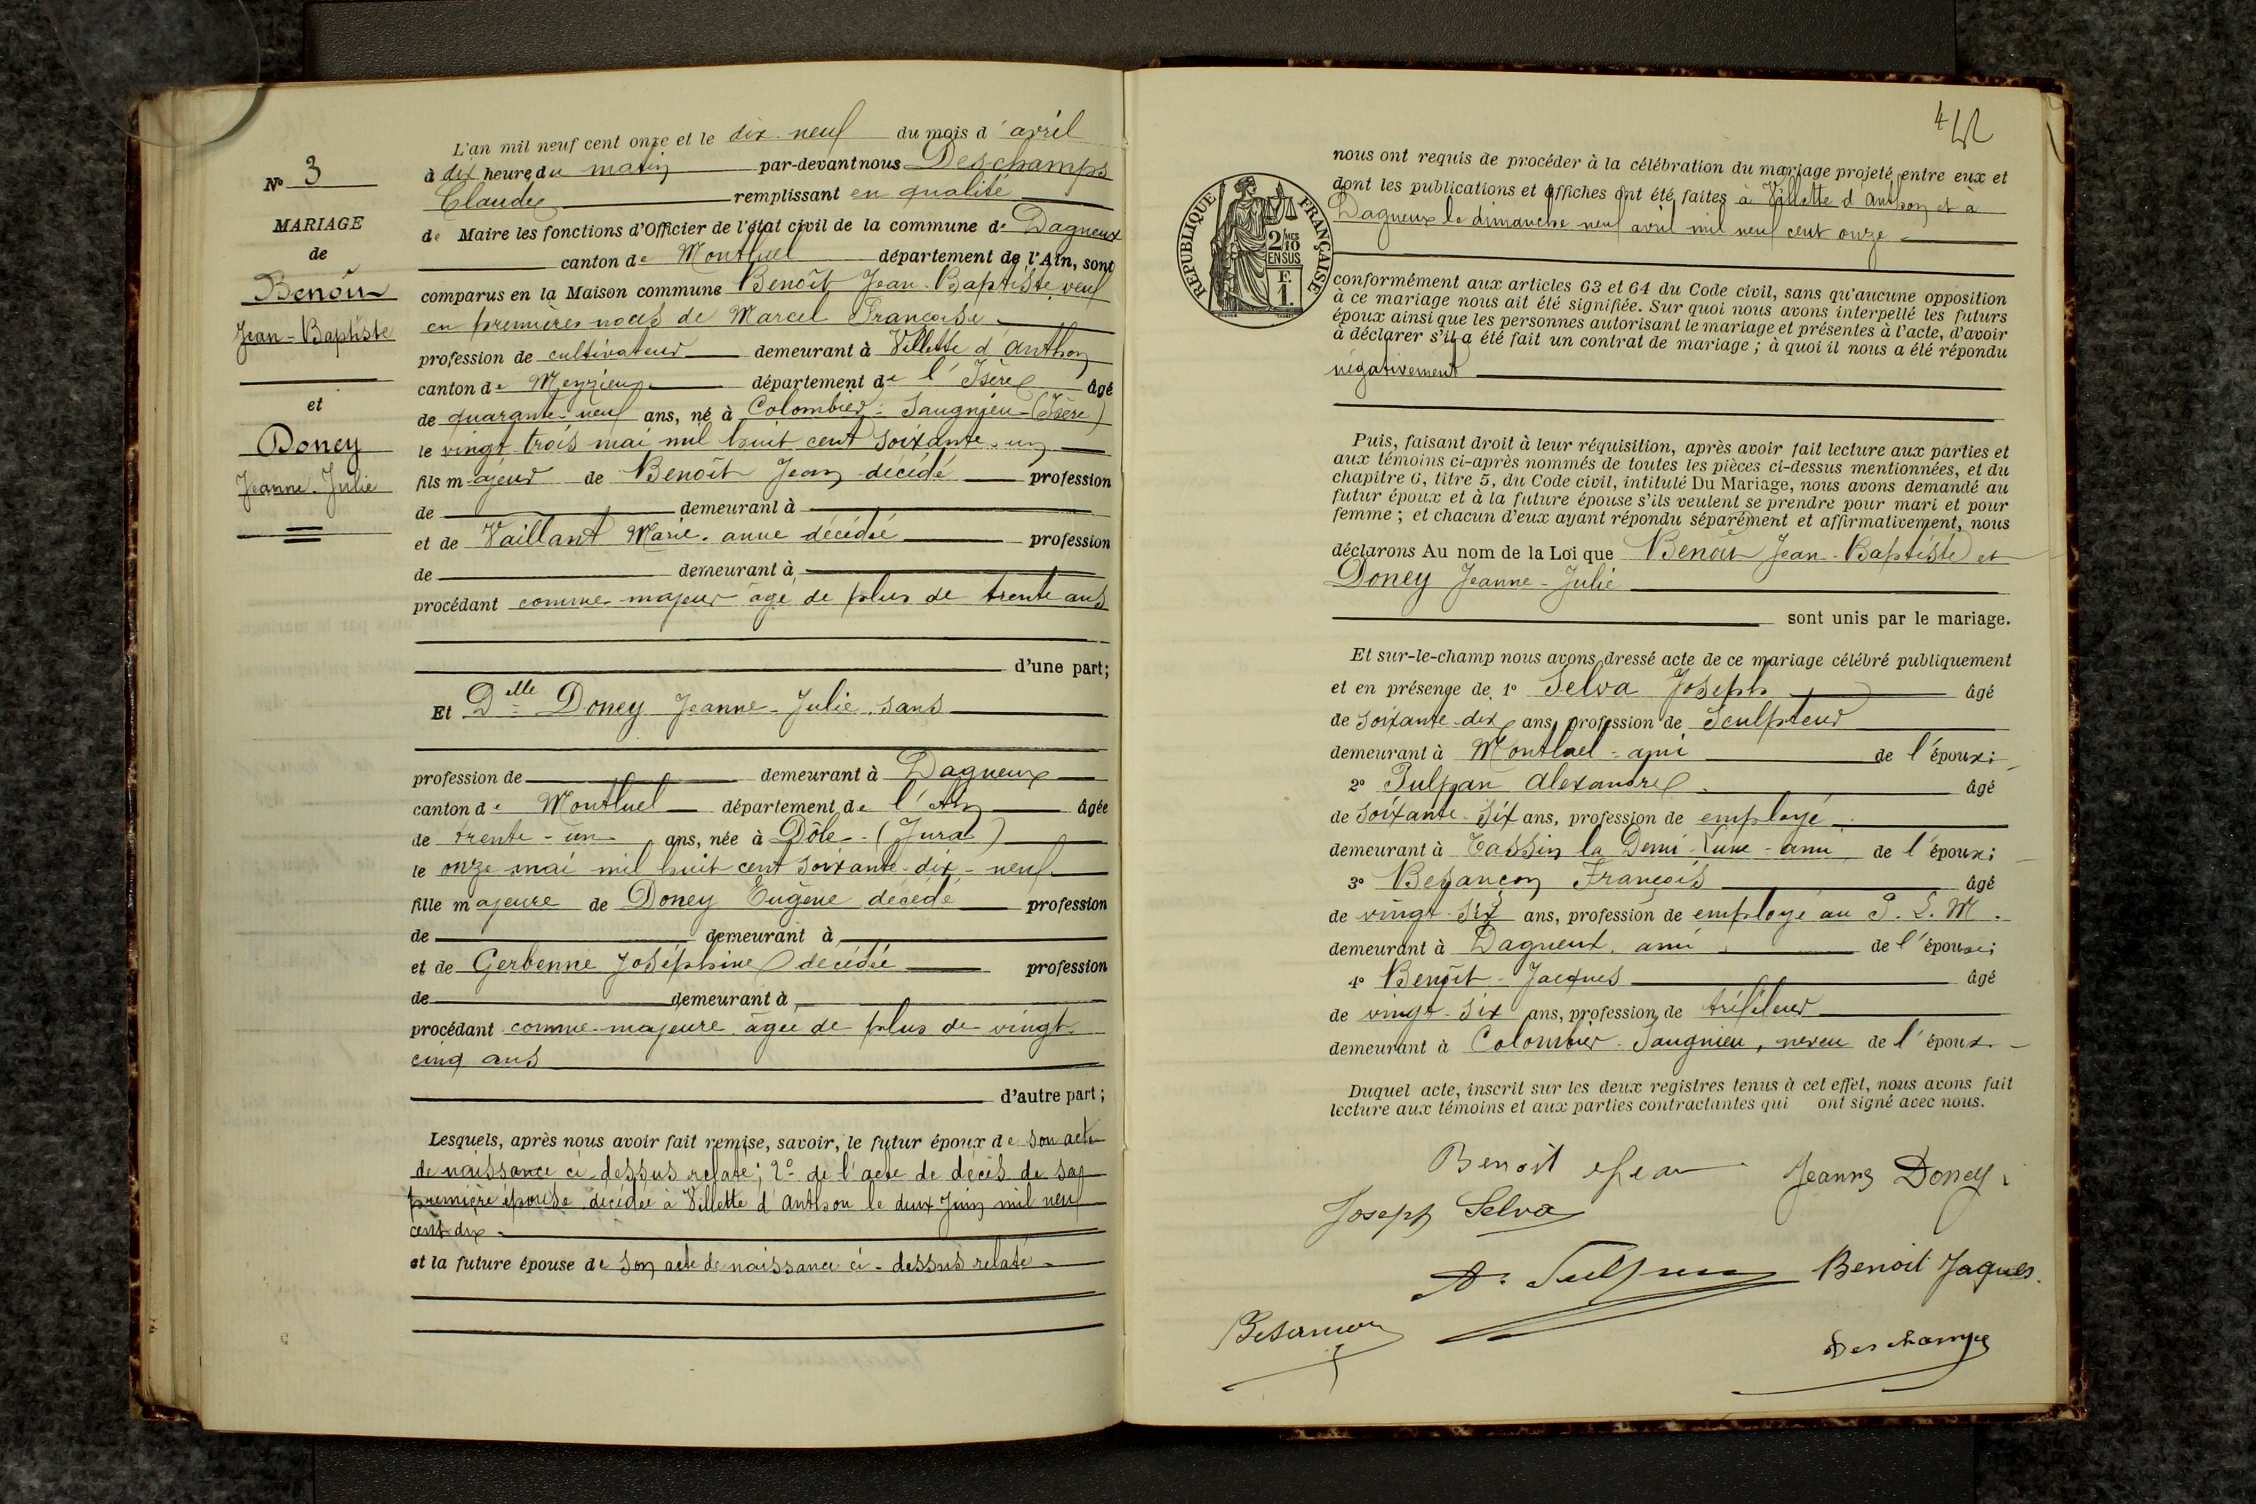 N° 3
MARIAGE
de
Benoît
Jean-Baptiste
et
Doney
Jeanne-Julie
L'an mil neuf cent onze et le dix-neuf du mois d'avril
à dix heure du matin par-devant nous Deschamps
Claude remplissant en qualité
de Maire les fonctions d'Officier de l'état civil de la commune de Dagneux
canton de Montluel département de l'Ain, sont
comparus en la Maison commune Benoît Jean-Baptiste, veuf
en premières noces de Marcel Françoise
profession de cultivateur demeurant à Villette d'Anthon
canton de Meyzieux département de l'Isère âgé
de quarante-neuf ans, né à Colombier-Saugnieu-(Isère)
le vingt trois mai mil huit cent soixante-un
fils majeur de Benoît Jean décédé profession
de demeurant à
et de Vaillant Marie-anne décédée profession
de demeurant à
procédant comme majeur âgé de plus de trente ans
d'une part;
Et Delle Doney Jeanne-Julie, sans
profession de demeurant à Dagneux
canton de Montluel département de l'Ain âgée
de trente-un ans, née à Dôle-(Jura)
le onze mai mil huit cent soixante-dix-neuf
fille majeure de Doney Eugène décédé profession
de demeurant à
et de Gerbenne Joséphine décédée profession
de demeurant à
procédant comme majeure âgée de plus de vingt-
cinq ans
d'autre part;
Lesquels, après nous avoir fait remise, savoir, le futur époux de son acte
de naissance ci-dessus relaté; 2° de l'acte de décès de sa
première épouse décédée à Villette d'Anthon le deux Juin mil neuf
cent dix
et la future épouse de son acte de naissance ci-dessus relaté
4
nous ont requis de procéder à la célébration du mariage projeté entre eux et
dont les publications et affiches ont été faites à Villette d'Anthon et à
Dagneux le dimanche neuf avril mil neuf cent onze
RÉPUBLIQUE FRANÇAISE
2 MES
10
EN SUS
F.
1.
conformément aux articles 63 et 64 du Code civil, sans qu'aucune opposition
à ce mariage nous ait été signifiée. Sur quoi nous avons interpellé les futurs
époux ainsi que les personnes autorisant le mariage et présentes à l'acte, d'avoir
à déclarer s'il a été fait un contrat de mariage; à quoi il nous a été répondu
négativement
Puis, faisant droit à leur réquisition, après avoir fait lecture aux parties et
aux témoins ci-après nommés de toutes les pièces ci-dessus mentionnées, et du
chapitre 6, titre 5, du Code civil, intitulé Du Mariage, nous avons demandé au
futur époux et à la future épouse s'ils veulent se prendre pour mari et pour
femme; et chacun d'eux ayant répondu séparément et affirmativement, nous
déclarons Au nom de la Loi que Benoît Jean-Baptiste et
Doney Jeanne-Julie
sont unis par le mariage.
Et sur-le-champ nous avons dressé acte de ce mariage célébré publiquement
et en présence de 1° Selva Joseph âgé
de soixante-dix ans, profession de Sculpteur
demeurant à Montluel-ami de l'époux;
2° Alexandre âgé
de soixante-six ans, profession de employé
demeurant à Tassin la Demi-Lune-ami de l'époux;
3° Besançon François âgé
de vingt-six ans, profession de employé au P.L.M.
demeurant à Dagneux, ami de l'épouse;
4° Benoît-Jacques âgé
de vingt-six ans, profession de tréfileur
demeurant à Colombier-Saugnieu, neveu de l'époux
Duquel acte, inscrit sur les deux registres tenus à cet effet, nous avons fait
lecture aux témoins et aux parties contractantes qui ont signé avec nous.
Benoit Jean
Jeanne Doney
Joseph Selva
Benoit Jaques
Besançon
Deschamps